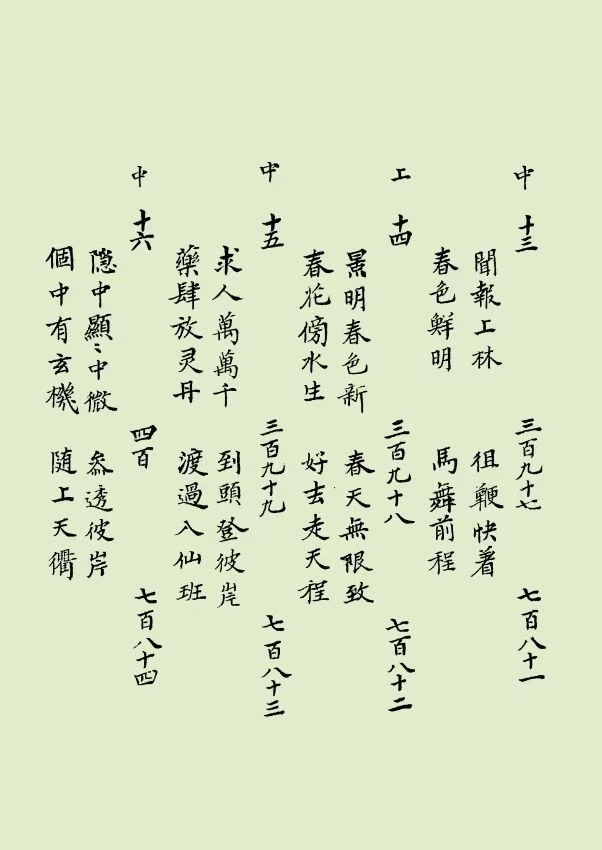 中 十三 三百九十七 七百八十一
聞報上林 徂鞭快着
春色鮮明 馬舞前程
上 十四 三百九十八 七百八十二
景明春色新 春天無限致
春花傍水生 好去走天程
中 十五 三百九十九 七百八十三
求人萬萬千 到頭登彼岸
藥肆放灵丹 渡過入仙班
中 十六 四百 七百八十四
隐中顯:中微 參透彼岸
個中有玄機 随上天衢